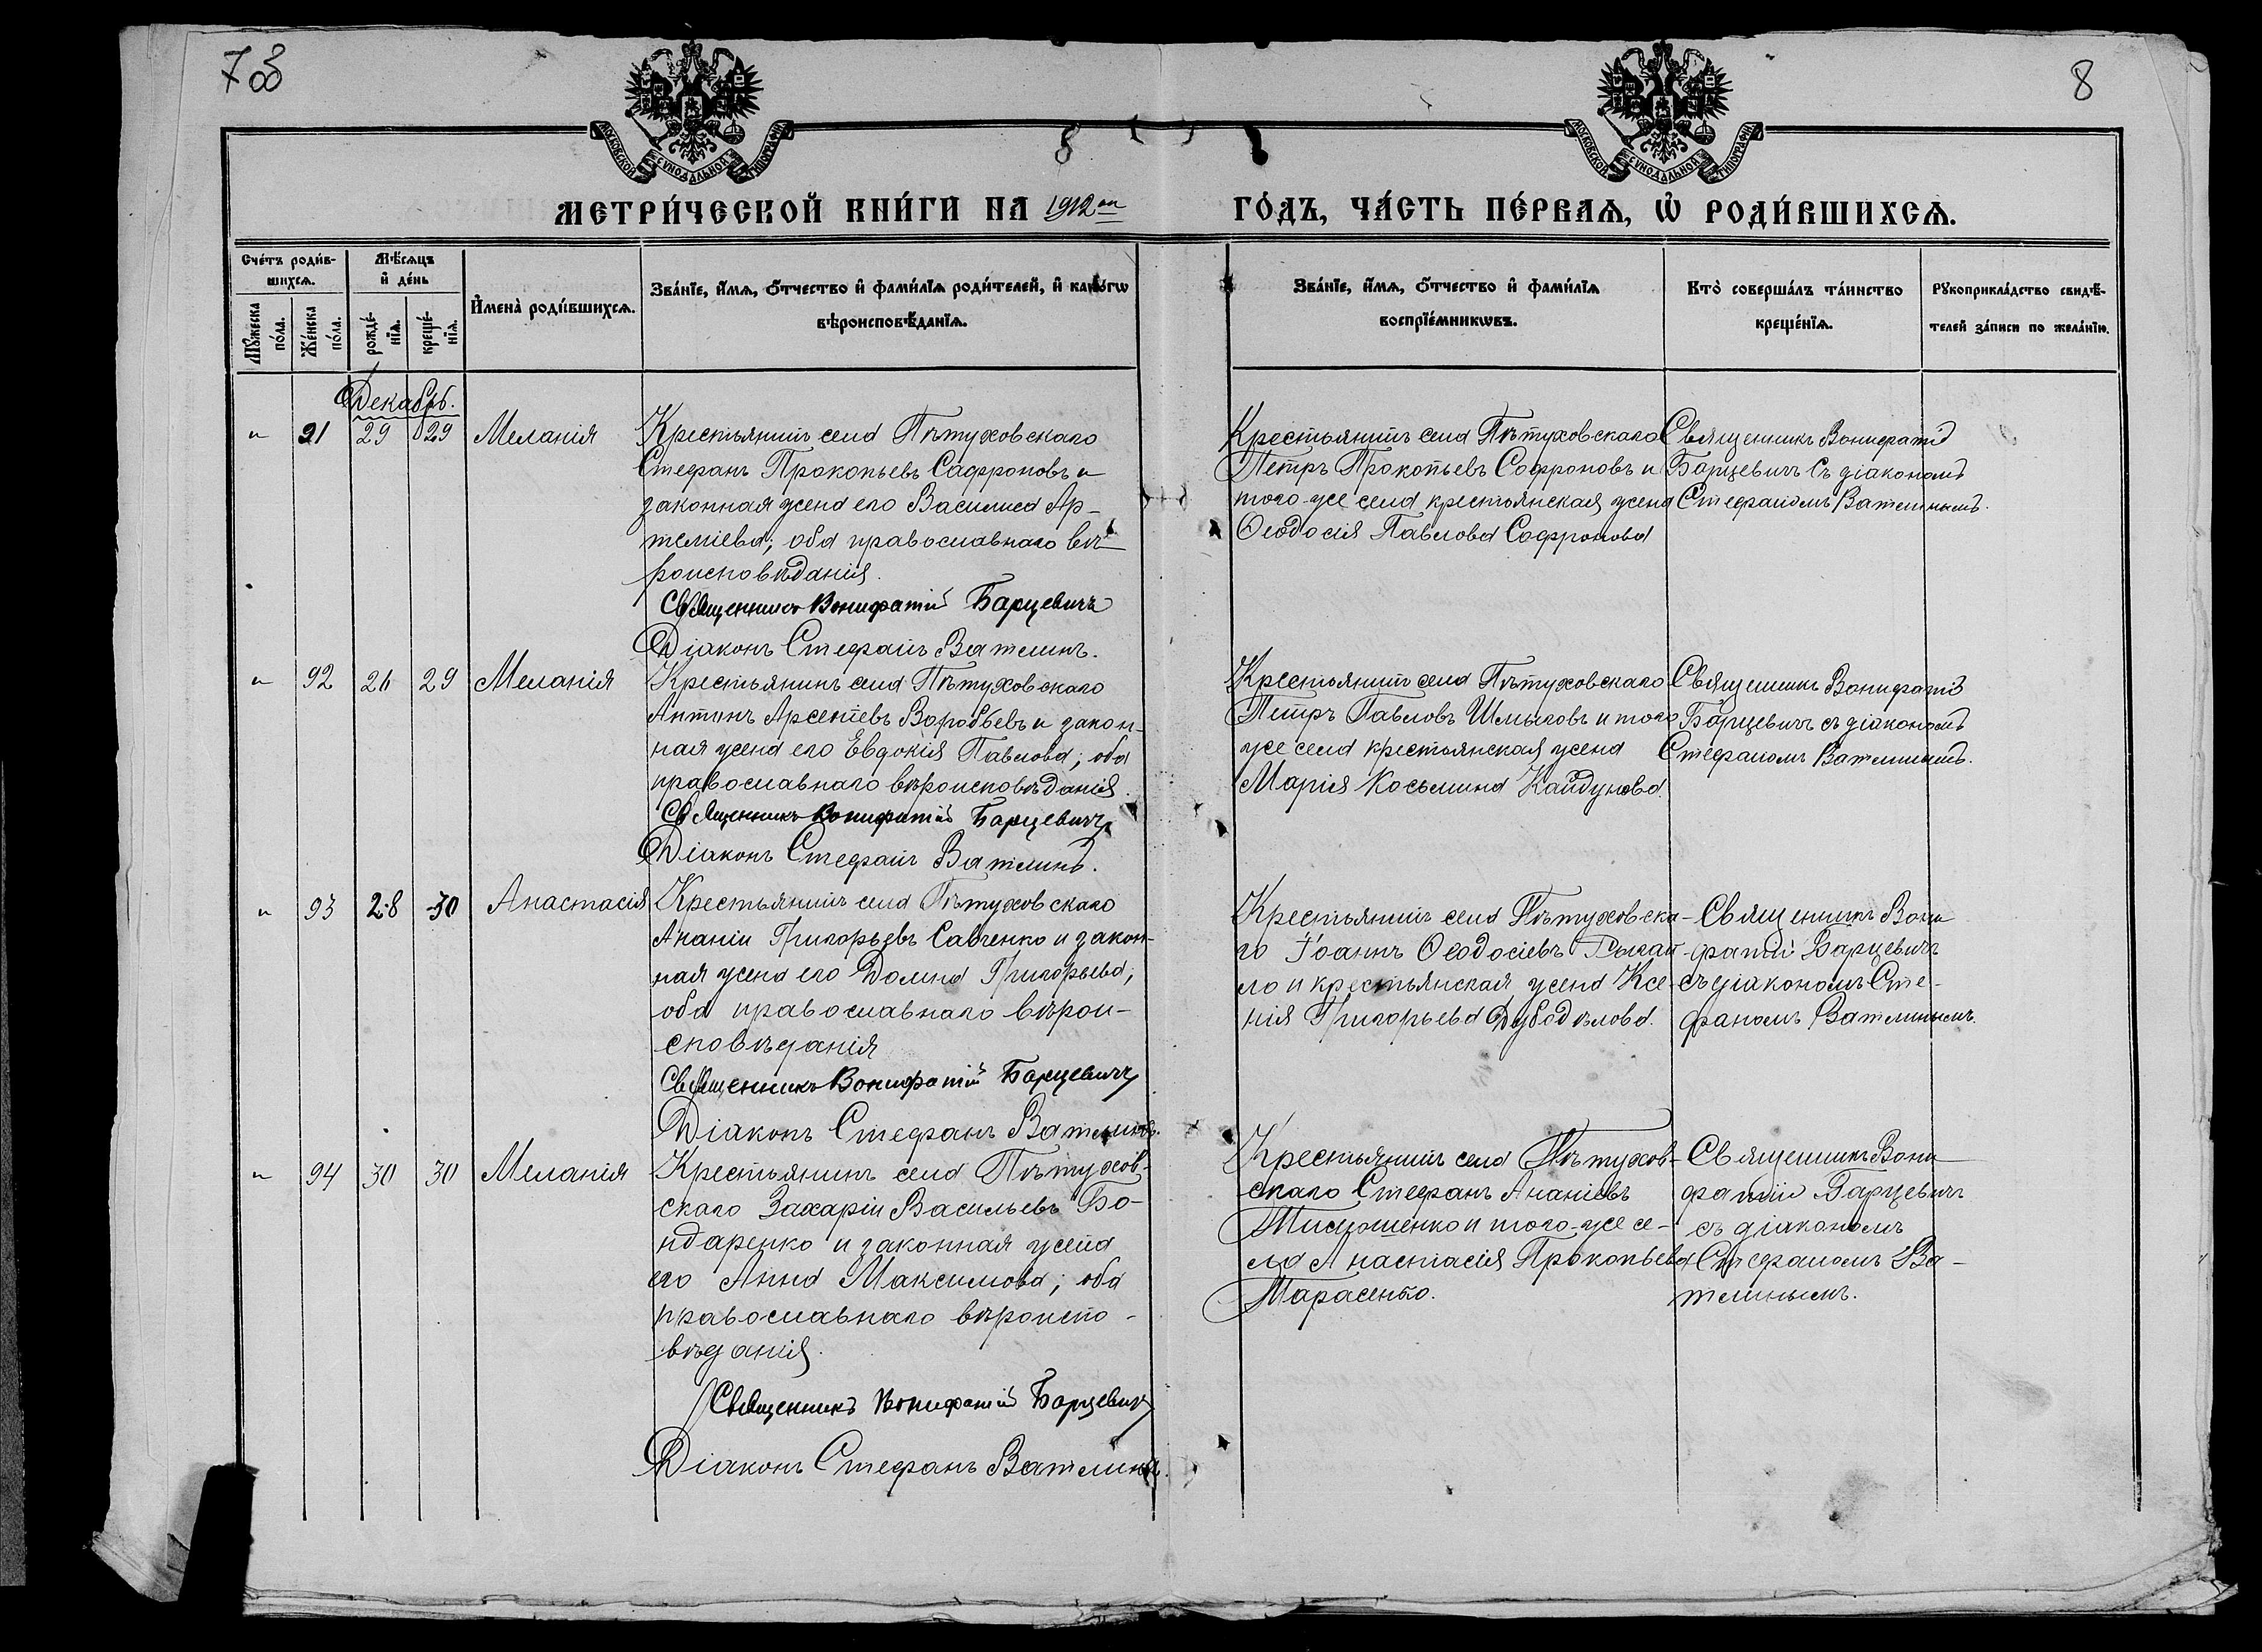 7об
8
МОСКОВСКОЙ СѴНОДАЛЬНОЙ ТИПОГРАФІИ
МОСКОВСКОЙ СѴНОДАЛЬНОЙ ТИПОГРАФІИ
МЕТРИ́ЧЕСКОЙ КНИ́ГИ НА 1912 ГО́ДЪ, ЧА́СТЬ ПЕ́РВАѦ, Ѡ҆ РОДИ́ВШИХСѦ.
Сче́тъ роди́в-
шихсѧ.
Мꙋ́жеска по́ла.
Же́нска по́ла.
Мѣ́сѧцъ и҆ де́нь
рожде́-нїѧ.
креще́-нїѧ.
И҆мена̀ роди́вшихсѧ.
Зва́нїе, и҆́мѧ, ѻ҆́тчество и҆ фами́лїѧ роди́телей, и҆ како́гѡ
вѣроисповѣ́данїѧ.
Зва́нїе, и҆́мѧ, ѻ҆́тчество и҆ фами́лїѧ
воспрїе́мникѡвъ.
Кто̀ соверша́лъ та́инство
креще́нїѧ.
Рꙋкоприкла́дство свидѣ́-
телей за́писи по жела́нїю.
Декабрь.
" 91 29 29 Меланія
Крестьянинъ села Пѣтуховскаго
Стефанъ Прокопьевъ Сафроновъ и
законная жена его Василиса Ар-
теміева; оба православнаго вѣ-
роисповѣданія.
Священникъ Вонифатій Барцевичъ
Діаконъ Стефанъ Ватлинъ.
Крестьянинъ села Пѣтуховскаго
Петръ Прокопьевъ Софроновъ и
того-же села крестьянская жена
Ѳеодосія Павлова Софронова
Священникъ Вонифатій
Барцевичъ съ діакономъ
Стефаномъ Ватлинымъ.
" 92 26 29 Меланія
Крестьянинъ села Пѣтуховскаго
Антонъ Арсентьевъ Воробьевъ и закон-
ная жена его Евдокія Павлова; оба
православнаго вѣроисповѣданія.
Священникъ Вонифатій Барцевичъ
Діаконъ Стефанъ Ватлинъ.
Крестьянинъ села Пѣтуховскаго
Петръ Павловъ Шмыговъ и того
же села крестьянская жена
Марія Косьмина Кайдунова.
Священникъ Вонифатій
Барцевичъ съ діакономъ
Стефаномъ Ватлинымъ.
" 93 28 30 Анастасія
Крестьянинъ села Пѣтуховскаго
Ананіи Григорьевъ Савченко и закон-
ная жена его Домна Григорьева;
оба православнаго вѣрои-
сповѣданія
Священникъ Вонифатій Барцевичъ
Діаконъ Стефанъ Ватлинъ.
Крестьянинъ села Пѣтуховска-
го Іоаннъ Ѳеодосіевъ
ло и крестьянская жена Ксе-
нія Григорьева Дубодѣлова.
Священникъ Вони
фатій Барцевичъ
съ діакономъ Сте-
фаномъ Ватлинымъ.
" 94 30 30 Меланія
Крестьянинъ села Пѣтухов-
скаго Захаріи Васильевъ Бо-
ндаренко и законная жена
его Анна Максимова; оба
православнаго вѣроиспо-
вѣданія.
Священникъ Вонифатій Барцевичъ
Діаконъ Стефанъ Ватлинъ.
Крестьянинъ села Пѣтухов-
скаго Стефанъ Ананіевъ
Тимошенко и того-же се-
ла Анастасія Прокопьева
Тарасенко.
Священникъ Вони
фатій Барцевичъ
съ діакономъ
Стефаномъ Ва-
тлинымъ.